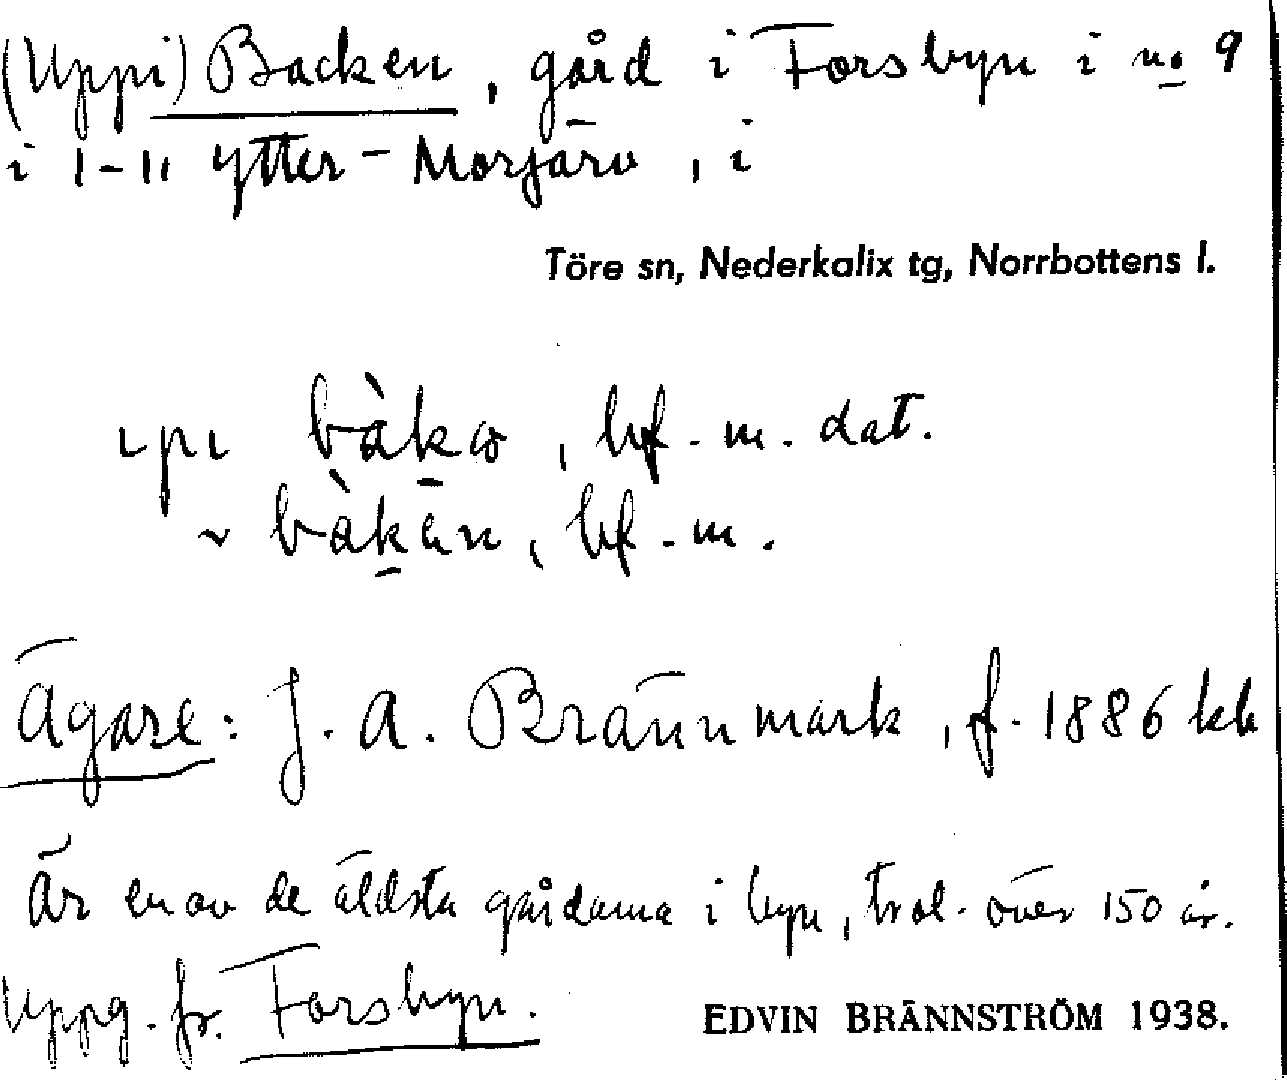 (Uppi) Backen, gård i Forsbyn i no 9
i 1-11 Ytter-Morjärv, i
Töre sn, Nederkalix tg, Norrbottens l.
ıpı bàkω, bf. m. dat.
~ bàkän, bf. m.
Ägare: J. A. Brännmark, f. 1886
Är en av de äldsta gårdarna i byn, trol. över 150 år.
Uppg. fr. Forsbyn.
EDVIN BRÄNNSTRÖM 1938.